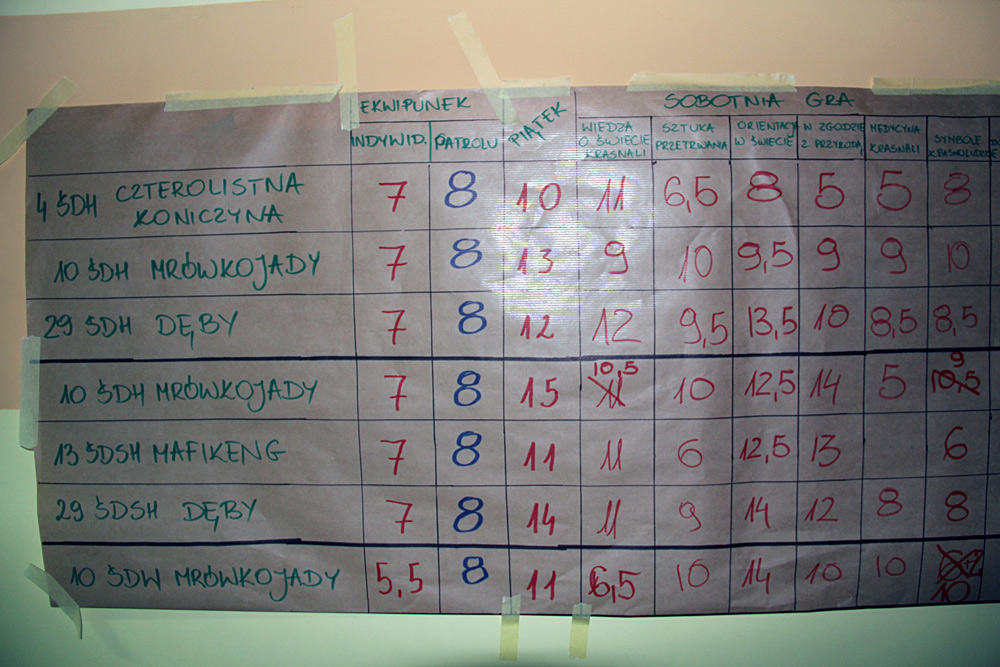 EKWIPUNEK PIĄTEK SOBOTNIA GRA
INDYWID. PATROLU WIEDZA O ŚWIECIE KRASNALI SZTUKA PRZETRWANIA ORIENTACJA W ŚWIECIE W ZGODZIE Z PRZYRODĄ MEDYCYNA KRASNALI SYMBOLE
4 ŚDH CZTEROLISTNA KONICZYNA 7 8 10 11 6,5 8 5 5 8
10 ŚDH MRÓWKOJADY 7 8 13 9 10 9,5 9 9 10
29 ŚDH DĘBY 7 8 12 12 9,5 13,5 10 8,5 8,5
10 ŚDH MRÓWKOJADY 7 8 15 10,5 11 10 12,5 14 5 9 10,5
13 ŚDSH MAFIKENG 7 8 11 11 6 12,5 13 6
29 ŚDSH DĘBY 7 8 14 11 9 14 12 8 8
10 ŚDW MRÓWKOJADY 5,5 8 11 6,5 10 14 10 10 10